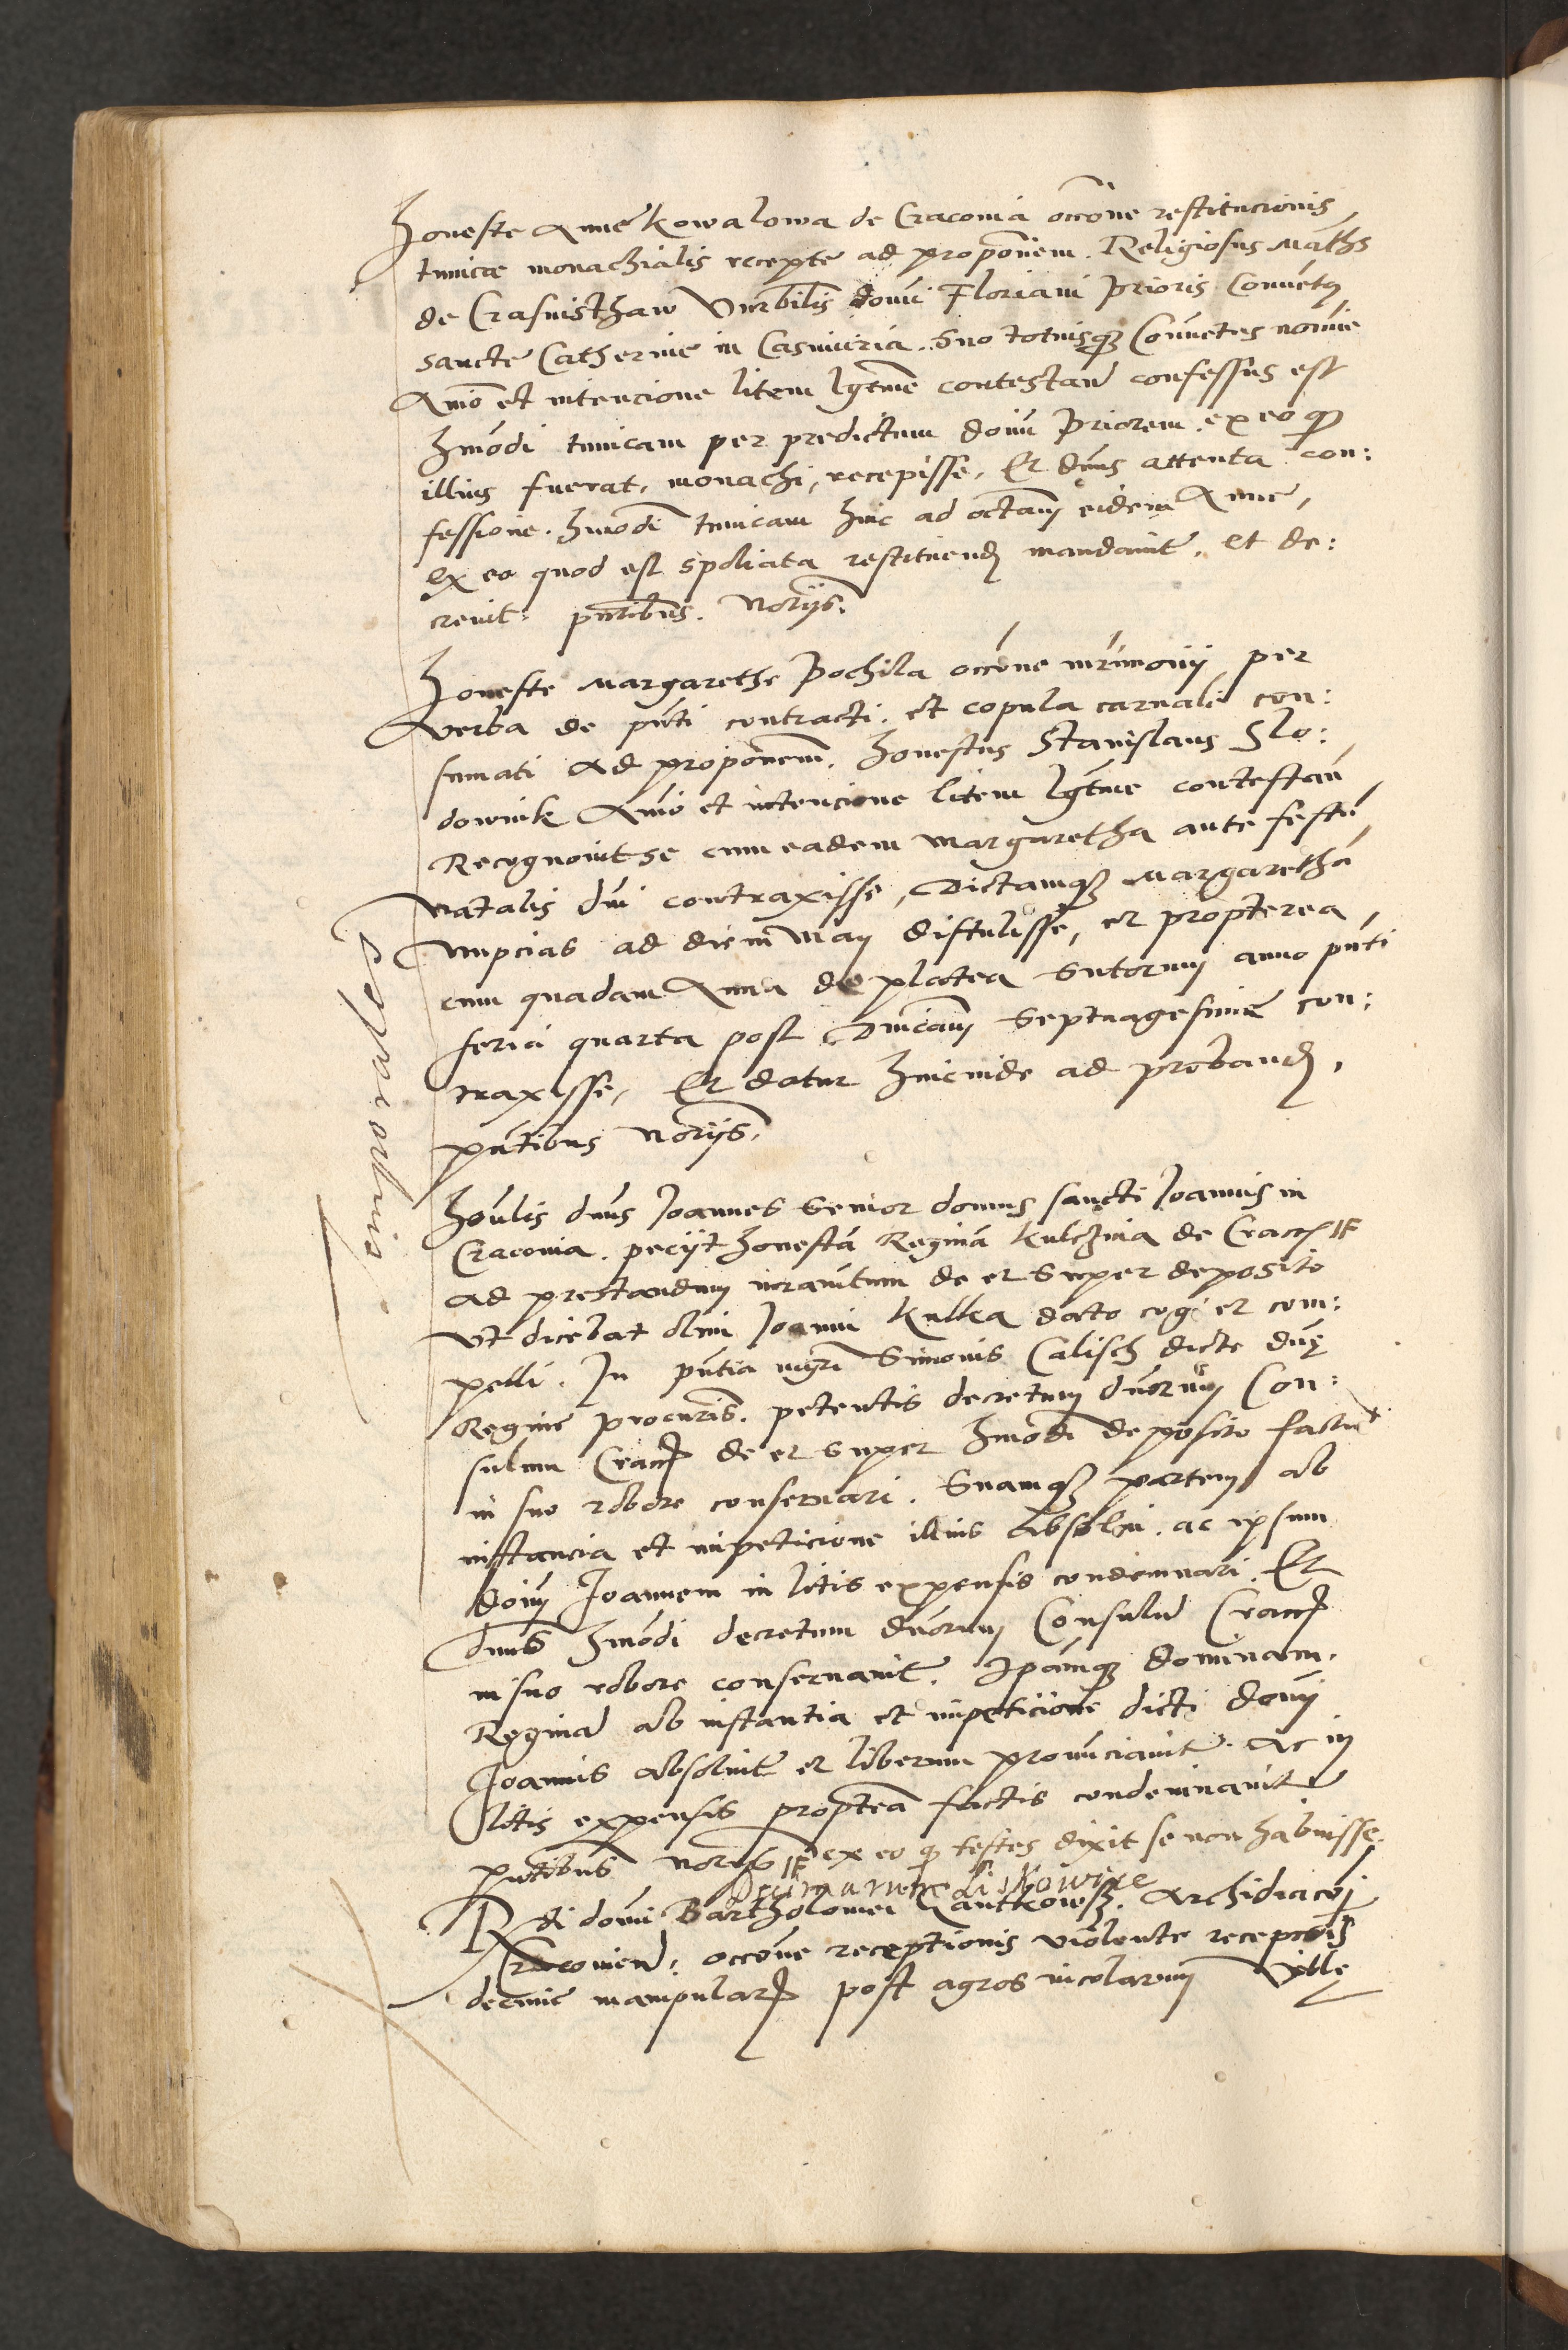 Honeste Anne Kowalowa de Cracovia occone restitucionis
tunice monachialis recepte ad proponem. Religiosus Maths
de Crasnisthaw Venrbilis domi Floriani Prioris Conuetus
sancte Catherine in Casimiria. Suo totiusq Conuetus nomie
Animo et intencione litem lgtme contestan confessus est
Hmodi tunicam per predictum domi Priorem ex eo q
illius fuerat, monachi, recepisse. Et dnus attenta con:
fessione. Hmodi tunicam hinc ad octam eidem Anne,
ex eo quod est spoliata restituend mandauit. et de:
creuit: pntibus. Norijs.
Honeste Margarethe Pochila occone mrimonij per
verba de pnti contracti. et copula carnali con:
sumati ad proponem. Honestus Stanislaus Slo:
downik Animo et intencione litem lgtme contestan
Recognouit se cum eadem Margaretha ante festu
Natalis dni contraxisse, Dictamq Margaretha
nupcias ad diem Maij distulisse, et propterea,
cum quadam Anna de platea Sutorum anno pnti
feria quarta post Dnicam Septuagesime con:
traxisse, Et datur hincinde ad proband,
pntibus Norijs.
Separatus
Honlis dnus Joannes Senior domus sancti Joannis in
Cracovia. peciit honesta Regina Kulczina de Crac
ad prestandum iuramtum de et super deposito
vt dicebat olim Joanni Kulka dato cogi et com:
pelli. In pntia mgri Simonis Calisch dicte dne
Regine procuris. petentis decretum dnorum Con:
sulum Crac de et super hmodi deposito factu
in suo robore conseruari. Suamq partem ab
instancia et impeticione illius absolui. ac ipsum
domi Joannem in litis expensis condemnari. Et
dnus hmodi decretum dnorum Consulu Crac
in suo robore conseruauit. Ipamq dominam
Regina ab instantia et impeticione dicti domi
Joannis absoluit et liberum pronuciauit. Ac in
litis expensis proptea factis condemnauit
pntibus norijs ex eo q testes dixit se non habuisse.
Rdi domi Bartholomei Gantkowsk. Archidiaconi
Cracovien. occone receptionis violente recepcois
decime manipular post agros incolarum Ville